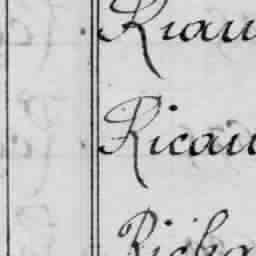 Riau
Ricau
Richa